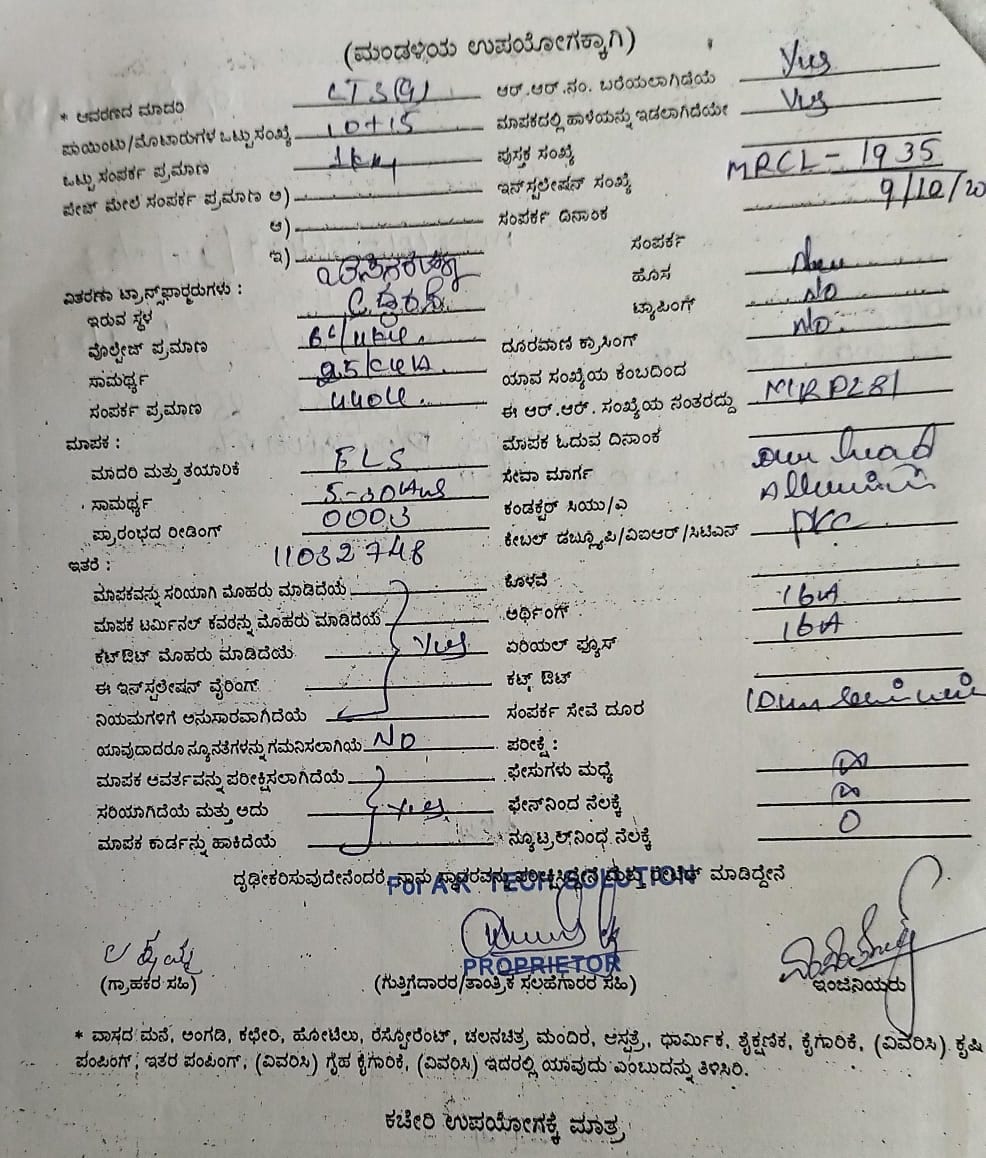 (ಮಂಡಳಿಯ ಉಪಯೋಗಕ್ಕಾಗಿ)
* ಆವರಣದ ಮಾದರಿ LTS(G) ಆರ್.ಆರ್.ನಂ. ಬರೆಯಲಾಗಿದೆಯೆ Yes
ಪಾಯಿಂಟು/ಮೋಟಾರುಗಳ ಒಟ್ಟು ಸಂಖ್ಯೆ 10+15 ಮಾಪಕದಲ್ಲಿ ಹಾಳೆಯನ್ನು ಇಡಲಾಗಿದೆಯೇ Yes
ಒಟ್ಟು ಸಂಪರ್ಕ ಪ್ರಮಾಣ 1kw ಪುಸ್ತಕ ಸಂಖ್ಯೆ
ಪೇಜ್ ಮೇಲೆ ಸಂಪರ್ಕ ಪ್ರಮಾಣ ಅ) ಇನ್‌ಸ್ಟಲೇಷನ್ ಸಂಖ್ಯೆ MRCL-1935
ಆ) ಸಂಪರ್ಕ ದಿನಾಂಕ 9/10/20
ಇ) ಸಂಪರ್ಕ
ವಿತರಣಾ ಟ್ರಾನ್ಸ್‌ಫಾರ್ಮರುಗಳು : ಹೊಸ New
ಇರುವ ಸ್ಥಳ ಟ್ಯಾಪಿಂಗ್ No
ವೋಲ್ಟೇಜ್ ಪ್ರಮಾಣ ದೂರವಾಣಿ ಕ್ರಾಸಿಂಗ್ No.
ಸಾಮರ್ಥ್ಯ 25/ ಯಾವ ಸಂಖ್ಯೆಯ ಕಂಬದಿಂದ
ಸಂಪರ್ಕ ಪ್ರಮಾಣ 440V. ಈ ಆರ್.ಆರ್. ಸಂಖ್ಯೆಯ ನಂತರದ್ದು
ಮಾಪಕ : ಮಾಪಕ ಓದುವ ದಿನಾಂಕ
ಮಾದರಿ ಮತ್ತು ತಯಾರಿಕೆ ಸೇವಾ ಮಾರ್ಗ Over head
ಸಾಮರ್ಥ್ಯ 5-30 ಕಂಡಕ್ಟರ್ ಸಿಯು/ಎ
ಪ್ರಾರಂಭದ ರೀಡಿಂಗ್ 0003 ಕೇಬಲ್ ಡಬ್ಲ್ಯೂಪಿ/ವಿಐಆರ್/ಸಿಟಿಎಸ್ PVC
ಇತರೆ : 11032748
ಮಾಪಕವನ್ನು ಸರಿಯಾಗಿ ಮೊಹರು ಮಾಡಿದೆಯೆ ಕೊಳವೆ
ಮಾಪಕ ಟರ್ಮಿನಲ್ ಕವರನ್ನು ಮೊಹರು ಮಾಡಿದೆಯೆ ಅರ್ಥಿಂಗ್ 16A
ಕಟ್‌ಔಟ್ ಮೊಹರು ಮಾಡಿದೆಯೆ Yes ಏರಿಯಲ್ ಫ್ಯೂಸ್ 16A
ಈ ಇನ್‌ಸ್ಟಲೇಷನ್ ವೈರಿಂಗ್ ಕಟ್ಟ್ ಔಟ್
ನಿಯಮಗಳಿಗೆ ಅನುಸಾರವಾಗಿದೆಯೆ ಸಂಪರ್ಕ ಸೇವೆ ದೂರ
ಯಾವುದಾದರೂ ನ್ಯೂನತೆಗಳನ್ನು ಗಮನಿಸಲಾಗಿಯೆ NO ಪರೀಕ್ಷೆ :
ಮಾಪಕ ಆವರ್ತವನ್ನು ಪರೀಕ್ಷಿಸಲಾಗಿದೆಯೆ ಫೇಸುಗಳು ಮಧ್ಯೆ ∞
ಸರಿಯಾಗಿದೆಯೆ ಮತ್ತು ಅದು Yes ಫೇಸ್‌ನಿಂದ ನೆಲಕ್ಕೆ ∞
ಮಾಪಕ ಕಾರ್ಡನ್ನು ಹಾಕಿದೆಯೆ ನ್ಯೂಟ್ರಲ್‌ನಿಂಧ ನೆಲಕ್ಕೆ 0
ದೃಢೀಕರಿಸುವುದೇನೆಂದರೆ, ನಾನು ಸ್ಥಾವರವನ್ನು ಪರೀಕ್ಷಿಸಿದ್ದೇನೆ ಮಾಡಿದ್ದೇನೆ
For A.K TECH SOLUTION
PROPRIETOR
(ಗ್ರಾಹಕರ ಸಹಿ) (ಗುತ್ತಿಗೆದಾರರ/ತಾಂತ್ರಿಕ ಸಲಹೆಗಾರರ ಸಹಿ) ಇಂಜಿನಿಯರು
* ವಾಸದ ಮನೆ, ಅಂಗಡಿ, ಕಛೇರಿ, ಹೋಟೆಲು, ರೆಸ್ಟೋರೆಂಟ್, ಚಲನಚಿತ್ರ ಮಂದಿರ, ಆಸ್ಪತ್ರೆ, ಧಾರ್ಮಿಕ, ಶೈಕ್ಷಣಿಕ, ಕೈಗಾರಿಕೆ, (ವಿವರಿಸಿ) ಕೃಷಿ
ಪಂಪಿಂಗ್, ಇತರ ಪಂಪಿಂಗ್, (ವಿವರಿಸಿ) ಗೃಹ ಕೈಗಾರಿಕೆ, (ವಿವರಿಸಿ) ಇದರಲ್ಲಿ ಯಾವುದು ಎಂಬುದನ್ನು ತಿಳಿಸಿರಿ.
ಕಚೇರಿ ಉಪಯೋಗಕ್ಕೆ ಮಾತ್ರ